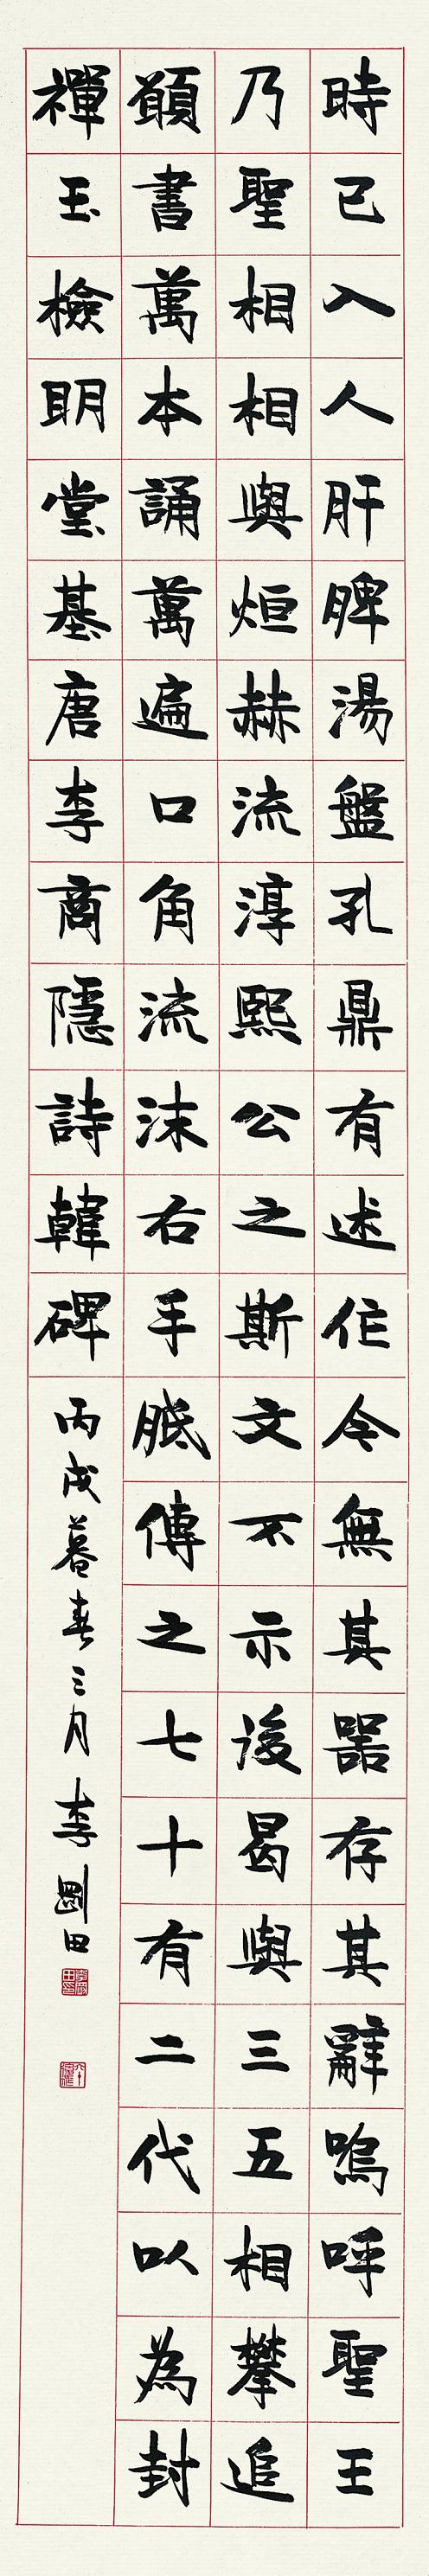 時已入人肝脾湯盤孔鼎有述作今無其器存其辭嗚呼聖王
乃聖相相與烜赫流淳熙公之斯文不示後曷與三五相攀追
願書萬本誦萬遍口角流沫右手胝傳之七十有二代以為封
禪玉檢明堂基唐李商隱詩韓碑
丙戌暮春三月李剛田